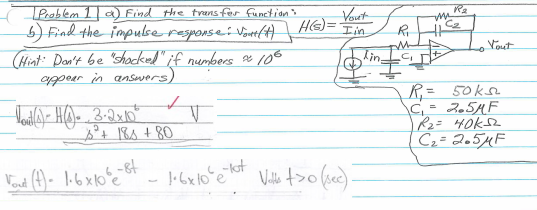 Problem 1 a) Find the transfer function: H(s) = Vout / Iin
b) Find the impulse response: Vout(t)
(Hint: Don't be "shocked" if numbers ≈ 10^6
appear in answers)
R2
C2
R1
Iin
C1
Vout
R1 = 50kΩ
C1 = 2.5μF
R2 = 40kΩ
C2 = 2.5μF
Vout(s) = H(s) = 3.2x10^6 / s^2 + 18s + 80 V ✓
Vout(t) = 1.6x10^6 e^-8t - 1.6x10^6 e^-10t Volts t>0 (sec)